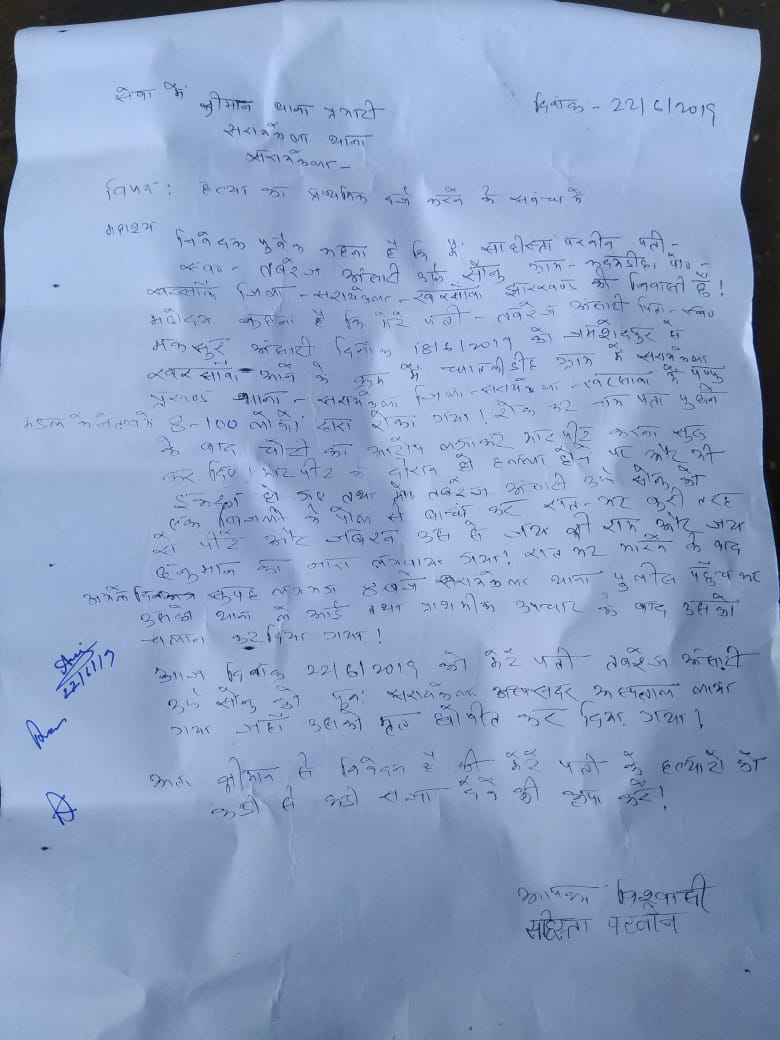 सेवा में
श्रीमान थाना प्रभारी
दिनांक - 22/6/2019
सरायकेला थाना
सरायकेला -
विषय : हत्या का प्राथमिक दर्ज करने के सबंध में
महाशय
निवेदन पूर्वक कहना है कि मैं साहीस्ता परवीन पती -
स्व० - तबरेज अंसारी उर्फ सोनु ग्राम - कदमडीहा पो० -
खरसाँवा जिला - सरायकेला - खरसाँवा झारखण्ड की निवासी हूँ!
महोदय कहना है कि मेरे पती - तबरेज अंसारी पिता - स्व०
मकसुर अंसारी दिनांक 18/6/2019 को जमशेदपुर से
खरसाँवा आने के क्रम में धातकीडीह ग्राम में सरायकेला
प्रखण्ड थाना - सरायकेला जिला - सरायकेला - खरसावा में पप्पु
मडल के नेतृत्व में 8-100 लोगों द्वारा रोका गया! रोक कर नाम पता पुछने
के बाद चोरी का आरोप लगाकर मार पीट करना सुरु
कर दिए। मार पीट के दौरान हो हल्ला होने पर और भी
इकट्ठा हो गए तथा तबरेज अंसारी उर्फ सोनु को
एक बिजली के पोल से बान्ध कर रात-भर बुरी तरह
से पीटे और जबरन उस से जय श्री राम और जय
हनुमान का नारा लगवाया गया! रात भर मारने के बाद
अगले सुबह लगभग बजे सरायकेला थाना पुलीस पहुँच कर
उसको थाना ले आई तथा प्राथमीक उपचार के बाद उसको
चलान कर दिया गया!
आज दिनांक 22/6/2019 को मेरे पती तबरेज अंसारी
उर्फ सोनु को पुनः सरायकेला सदर अस्पताल लाया
गया जहाँ उसको मृत घोषीत कर दिया गया!
22/6/19
अतः श्रीमान से निवेदन है की मेरे पती के हत्यारों को
कड़ी से कड़ी सजा देने की कृपा करें!
आपका विश्वासी
साहिस्ता परवीन